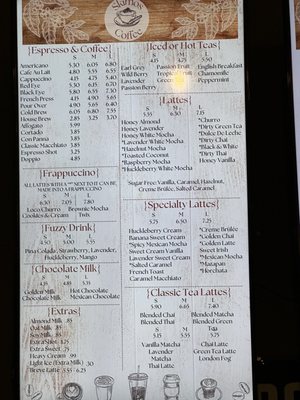 Coffee
{Espresso & Coffee}
S M L
Americano 5.30 6.05 6.80
Cafe Au Lait 4.80 5.55 6.55
Cappuccino 4.15 4.75 5.55
Red Eye 5.30 6.05 6.75
Black Eye 5.80 6.55 7.30
French Press 4.15 4.90 5.65
Pour Over 4.90 5.65 6.40
Cold Brew 6.05 6.80 7.55
House Brew 2.85 3.25 3.70
Affogato 5.99
Cortado 3.85
Con Panna 3.85
Classic Macchiato 3.85
Espresso Shot 3.25
Doppio 4.85
{Frappuccino}
ALL LATTES WITH A "*" NEXT TO IT CAN BE
MADE INTO A FRAPPUCCINO
S M L
6.30 7.05 7.80
Loco Churro Brownie Mocha
Cookies & Cream Twix
{Fuzzy Drink}
S M L
4.50 5.00 5.55
Pina Colada, Strawberry, Lavender,
Huckleberry, Mango
{Chocolate Milk}
S M L
4.35 4.85 5.35
Golden Milk Hot Chocolate
Chocolate Milk Mexican Chocolate
{Extras}
Almond Milk .85
Oat Milk .85
Soy Milk .85
Extra Shot
Extra Sweet .75
Heavy Cream .99
Light Ice (Extra Milk) .30
Breve Latte
{Iced or Hot Teas}
S M L
4.15 4.75 5.55
Earl Grey Passion Fruit English Breakfast
Wild Berry Tropical Chamomile
Lavender Green Peppermint
Passion Berry
{Lattes}
S M L
5.55 6.30 7.15
Honey Almond *Churro
Honey Lavender *Dirty Green Tea
Honey White Mocha *Dulce De Leche
*Lavender White Mocha *Dirty Chai
*Hazelnut Mocha *Black & White
*Toasted Coconut *Dirty Thai
*Raspberry Mocha Honey Vanilla
*Huckleberry White Mocha
Sugar Free: Vanilla, Caramel, Hazelnut,
Creme Brulee, Salted Caramel
{Specialty Lattes}
S M L
5.75 6.50 7.25
Huckleberry Cream *Creme Brulee
Banana Sweet Cream *Golden Chai
*Spicy Mexican Mocha *Golden Latte
Sweet Cream Vanilla Sweet Irish
Lavender Sweet Cream *Mexican Mocha
*Salted Caramel *Mazapan
French Toast *Horchata
Caramel Macchiato
{Classic Tea Lattes}
S M L
5.90 6.65 7.40
Blended Chai Blended Matcha
Blended Thai Blended Green
S M
Vanilla Matcha Chai Latte
Lavender Green Tea Latte
Matcha London Fog
Thai Latte